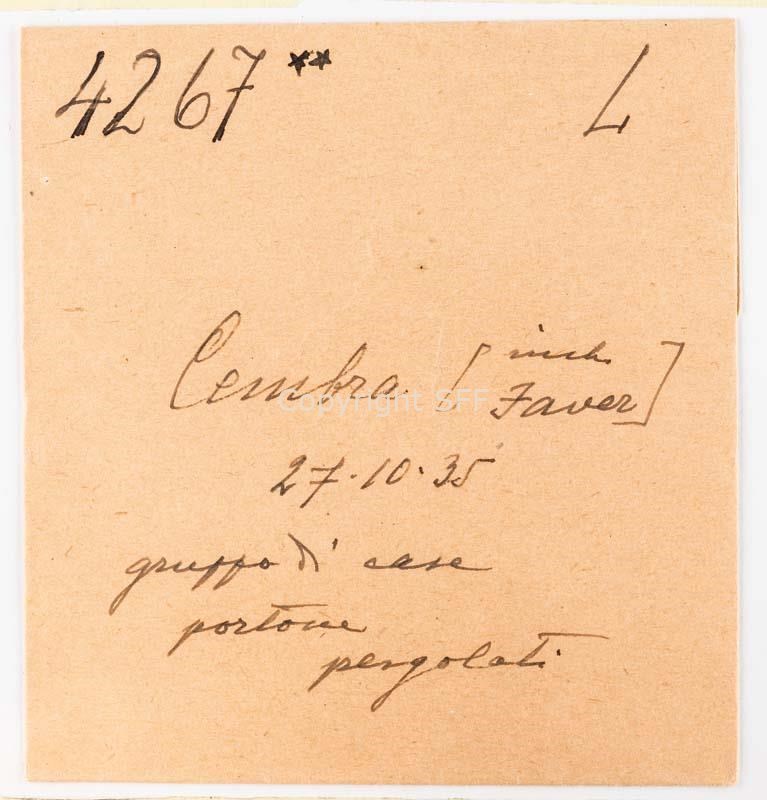 4267** L
Cembra [
Faver]
27.10.35
gruppo di case
portone
pergolati
Copyright SFF